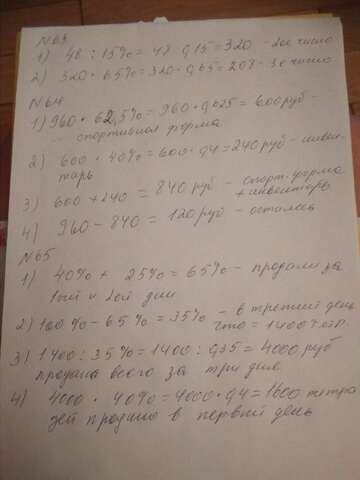 №63
1) 48 : 15% = 48 : 0,15 = 320 - 2ое число
2) 320 · 65% = 320 · 0,65 = 208 - 3е число
№64
1) 960 · 62,5% = 960 · 0,625 = 600 руб -
- спортивная форма
2) 600 · 40% = 600 · 0,4 = 240 руб - инвен-
тарь
3) 600 + 240 = 840 руб - спорт. форма
+ инвентарь
4) 960 - 840 = 120 руб - осталось
№65
1) 40% + 25% = 65% - продали за
1ый и 2ой дни
2) 100% - 65% = 35% - в третий день
что = 1400 тетр.
3) 1400 : 35% = 1400 : 0,35 = 4000 руб
продана всего за три дня
4) 4000 · 40% = 4000 · 0,4 = 1600 тетра
дей продано в первый день